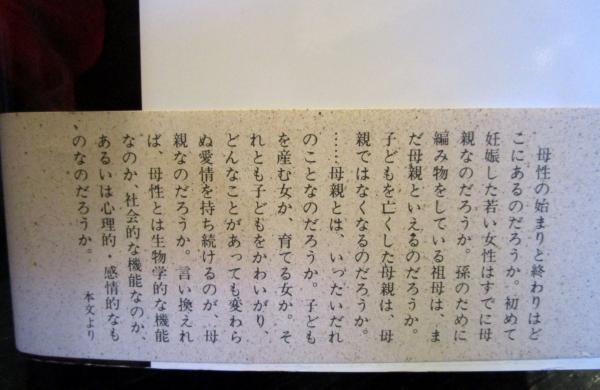 母性の始まりと終わりはど
こにあるのだろうか。初めて
妊娠した若い女性はすでに母
親なのだろうか。孫のために
編み物をしている祖母は、ま
だ母親といえるのだろうか。
子どもを亡くした母親は、母
親ではなくなるのだろうか。
……母親とは、いったいだれ
のことなのだろうか。子ども
を産む女か、育てる女か。そ
れとも子どもをかわいがり、
どんなことがあっても変わら
ぬ愛情を持ち続けるのが、母
親なのだろうか。言い換えれ
ば、母性とは生物学的な機能
なのか、社会的な機能なのか、
あるいは心理的・感情的なも
のなのだろうか。
本文より